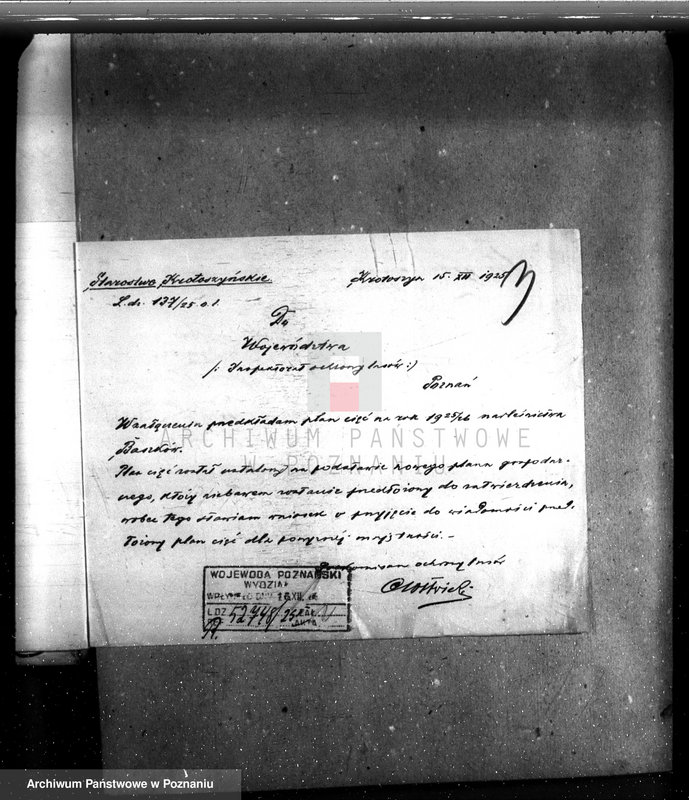 Starostwo Krotoszyńskie. Krotoszyn 15. XII 1925
L.dz. 137/25 o.l.
Do
Województwa
/: Inspektorat ochrony lasów :/
Poznań
W załączeniu przedkładam plan cięć na rok 1925/26 nadleśnictwa
Baszków.
Plan cięć został ustalony na podstawie nowego planu gospodar-
czego, który niebawem zostanie przedłożony do zatwierdzenia,
wobec tego stawiam wniosek o przyjęcie do wiadomości przed-
łożony plan cięć dla powyższej majętności. –
ochrony lasów
WOJEWODA POZNAŃSKI
WYDZIAŁ
WPŁYNĘŁO DNIA 16 XII.
L.DZ. 52448/25 ZAŁ.
ARCHIWUM PAŃSTWOWE
W POZNANIU
Archiwum Państwowe w Poznaniu